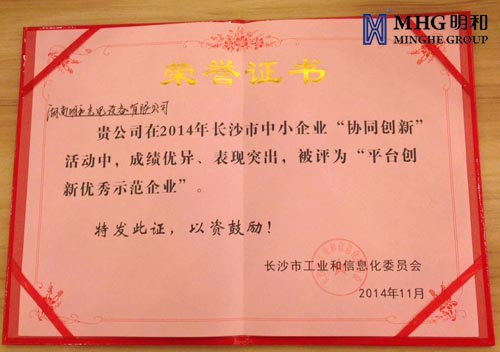 MHG明和
MINGHE GROUP
荣誉证书
湖南明和光电设备有限公司
贵公司在2014年长沙市中小企业“协同创新”
活动中，成绩优异、表现突出，被评为“平台创
新优秀示范企业”。
特发此证，以资鼓励！
长沙市工业和信息化委员会
2014年11月